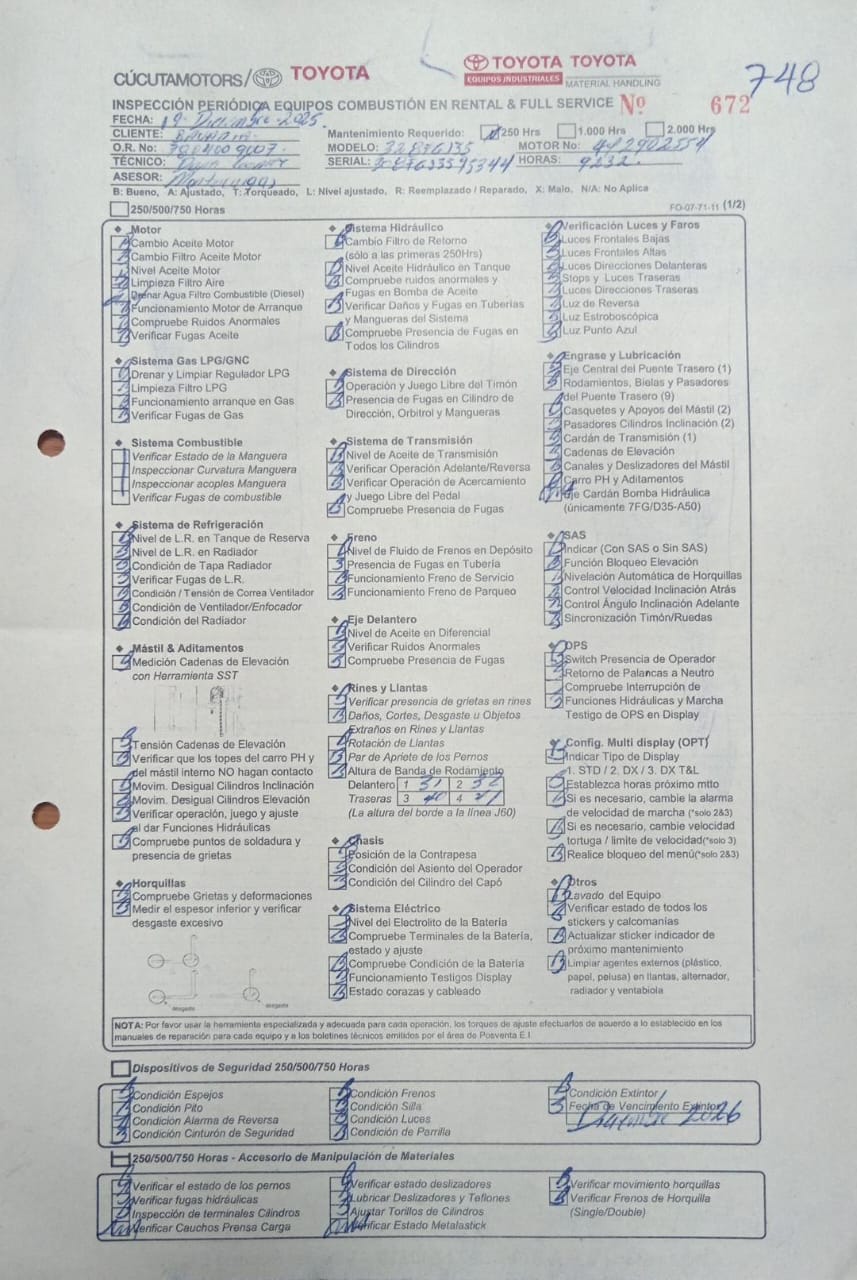 748
CÚCUTAMOTORS/ TOYOTA
TOYOTA TOYOTA
EQUIPOS INDUSTRIALES MATERIAL HANDLING
INSPECCIÓN PERIÓDICA EQUIPOS COMBUSTIÓN EN RENTAL & FULL SERVICE Nº 672
FECHA: 19 Diciembre 2025
CLIENTE:
Mantenimiento Requerido: 250 Hrs 1.000 Hrs 2.000 Hrs
O.R. No: MODELO: MOTOR No:
TÉCNICO: SERIAL: HORAS: 9232
ASESOR:
B: Bueno, A: Ajustado, T: Torqueado, L: Nivel ajustado, R: Reemplazado / Reparado, X: Malo, N/A: No Aplica
250/500/750 Horas
FO-07-71-11 (1/2)
Motor
Cambio Aceite Motor
Cambio Filtro Aceite Motor
Nivel Aceite Motor
Limpieza Filtro Aire
Drenar Agua Filtro Combustible (Diesel)
Funcionamiento Motor de Arranque
Compruebe Ruidos Anormales
Verificar Fugas Aceite
Sistema Gas LPG/GNC
Drenar y Limpiar Regulador LPG
Limpieza Filtro LPG
Funcionamiento arranque en Gas
Verificar Fugas de Gas
Sistema Combustible
Verificar Estado de la Manguera
Inspeccionar Curvatura Manguera
Inspeccionar acoples Manguera
Verificar Fugas de combustible
Sistema de Refrigeración
Nivel de L.R. en Tanque de Reserva
Nivel de L.R. en Radiador
Condición de Tapa Radiador
Verificar Fugas de L.R.
Condición / Tensión de Correa Ventilador
Condición de Ventilador/Enfocador
Condición del Radiador
Mástil & Aditamentos
Medición Cadenas de Elevación
con Herramienta SST
Tensión Cadenas de Elevación
Verificar que los topes del carro PH y
del mástil interno NO hagan contacto
Movim. Desigual Cilindros Inclinación
Movim. Desigual Cilindros Elevación
Verificar operación, juego y ajuste
al dar Funciones Hidráulicas
Compruebe puntos de soldadura y
presencia de grietas
Horquillas
Compruebe Grietas y deformaciones
Medir el espesor inferior y verificar
desgaste excesivo
desgaste
desgaste
Sistema Hidráulico
Cambio Filtro de Retorno
(sólo a las primeras 250Hrs)
Nivel Aceite Hidráulico en Tanque
Compruebe ruidos anormales y
Fugas en Bomba de Aceite
Verificar Daños y Fugas en Tuberías
y Mangueras del Sistema
Compruebe Presencia de Fugas en
Todos los Cilindros
Sistema de Dirección
Operación y Juego Libre del Timón
Presencia de Fugas en Cilindro de
Dirección, Orbitrol y Mangueras
Sistema de Transmisión
Nivel de Aceite de Transmisión
Verificar Operación Adelante/Reversa
Verificar Operación de Acercamiento
y Juego Libre del Pedal
Compruebe Presencia de Fugas
Freno
Nivel de Fluido de Frenos en Depósito
Presencia de Fugas en Tubería
Funcionamiento Freno de Servicio
Funcionamiento Freno de Parqueo
Eje Delantero
Nivel de Aceite en Diferencial
Verificar Ruidos Anormales
Compruebe Presencia de Fugas
Rines y Llantas
Verificar presencia de grietas en rines
Daños, Cortes, Desgaste u Objetos
Extraños en Rines y Llantas
Rotación de Llantas
Par de Apriete de los Pernos
Altura de Banda de Rodamiento
Delantero 1 2
Traseras 3 4
(La altura del borde a la línea J60)
Chasis
Posición de la Contrapesa
Condición del Asiento del Operador
Condición del Cilindro del Capó
Sistema Eléctrico
Nivel del Electrolito de la Batería
Compruebe Terminales de la Batería,
estado y ajuste
Compruebe Condición de la Batería
Funcionamiento Testigos Display
Estado corazas y cableado
Verificación Luces y Faros
Luces Frontales Bajas
Luces Frontales Altas
Luces Direcciones Delanteras
Stops y Luces Traseras
Luces Direcciones Traseras
Luz de Reversa
Luz Estroboscópica
Luz Punto Azul
Engrase y Lubricación
Eje Central del Puente Trasero (1)
Rodamientos, Bielas y Pasadores
del Puente Trasero (9)
Casquetes y Apoyos del Mástil (2)
Pasadores Cilindros Inclinación (2)
Cardán de Transmisión (1)
Cadenas de Elevación
Canales y Deslizadores del Mástil
Carro PH y Aditamentos
Eje Cardán Bomba Hidráulica
(únicamente 7FG/D35-A50)
SAS
Indicar (Con SAS o Sin SAS)
Función Bloqueo Elevación
Nivelación Automática de Horquillas
Control Velocidad Inclinación Atrás
Control Ángulo Inclinación Adelante
Sincronización Timón/Ruedas
OPS
Switch Presencia de Operador
Retorno de Palancas a Neutro
Compruebe Interrupción de
Funciones Hidráulicas y Marcha
Testigo de OPS en Display
Config. Multi display (OPT)
Indicar Tipo de Display
1. STD / 2. DX / 3. DX T&L
Establezca horas próximo mtto
Si es necesario, cambie la alarma
de velocidad de marcha (*solo 2&3)
Si es necesario, cambie velocidad
tortuga / limite de velocidad(*solo 3)
Realice bloqueo del menú(*solo 2&3)
Otros
Lavado del Equipo
Verificar estado de todos los
stickers y calcomanías
Actualizar sticker indicador de
próximo mantenimiento
Limpiar agentes externos (plástico,
papel, pelusa) en llantas, alternador,
radiador y ventabiola
NOTA: Por favor usar la herramienta especializada y adecuada para cada operación, los torques de ajuste efectuarlos de acuerdo a lo establecido en los
manuales de reparación para cada equipo y a los boletines técnicos emitidos por el área de Posventa E.I.
Dispositivos de Seguridad 250/500/750 Horas
Condición Espejos
Condición Pito
Condición Alarma de Reversa
Condición Cinturón de Seguridad
Condición Frenos
Condición Silla
Condición Luces
Condición de Parrilla
Condición Extintor
Fecha de Vencimiento Extintor
2026
250/500/750 Horas - Accesorio de Manipulación de Materiales
Verificar el estado de los pernos
Verificar fugas hidráulicas
Inspección de terminales Cilindros
Verificar Cauchos Prensa Carga
Verificar estado deslizadores
Lubricar Deslizadores y Teflones
Ajustar Torillos de Cilindros
Verificar Estado Metalastick
Verificar movimiento horquillas
Verificar Frenos de Horquilla
(Single/Double)